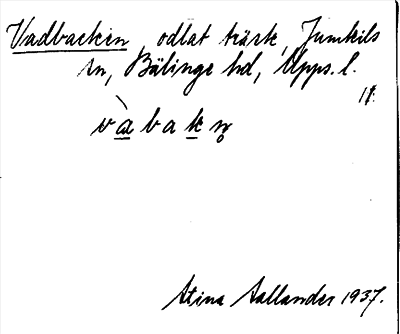 Vadbacken, odlat kärk, Jumkils
sn, Bälinge hd, Upps. l.
1t.
vàbakn̥
Stina Sallander 1937.